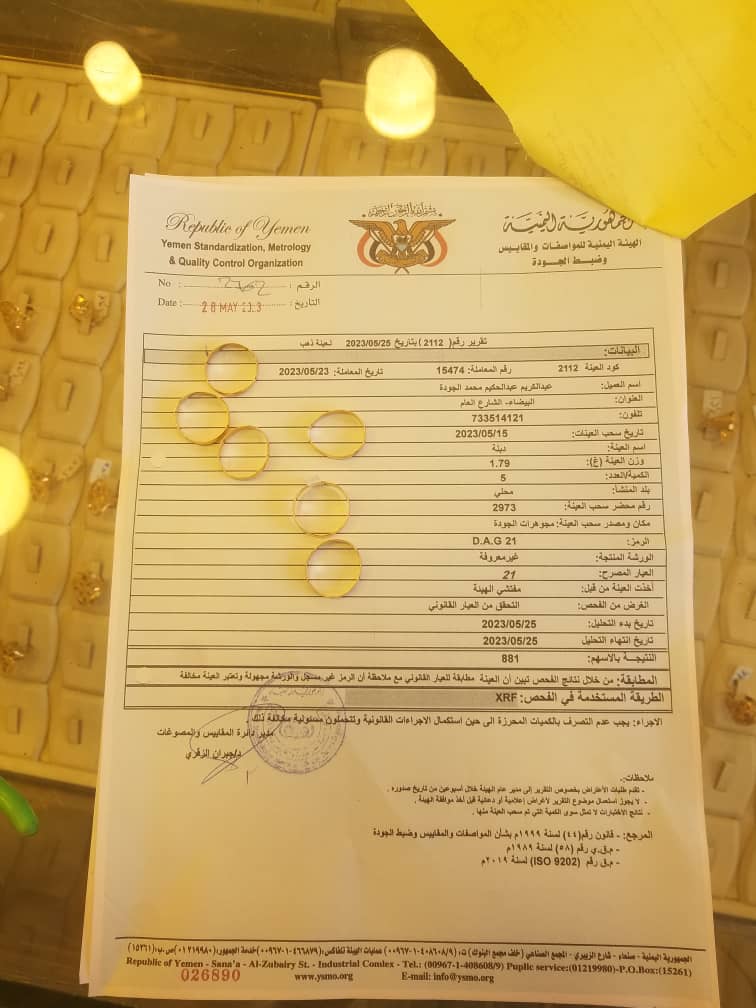 Republic of Yemen
Yemen Standardization, Metrology
& Quality Control Organization
الجمهورية اليمنية
الهيئة اليمنية للمواصفات والمقاييس
وضبط الجودة
No : الرقم :
Date : 28 MAY التاريخ :
تقرير رقم( 2112 ) بتاريخ 2023/05/25 لعينة ذهب
البيانات:
كود العينة 2112 رقم المعاملة: 15474 تاريخ المعاملة: 2023/05/23
اسم العميل: عبدالكريم عبدالحكيم محمد الجودة
العنوان: البيضاء- الشارع العام
تلفون: 733514121
تاريخ سحب العينات: 2023/05/15
اسم العينة: دبلة
وزن العينة (غ): 1.79
الكمية/العدد: 5
بلد المنشأ: محلي
رقم محضر سحب العينة: 2973
مكان ومصدر سحب العينة: مجوهرات الجودة
الرمز: D.A.G 21
الورشة المنتجة: غير معروفة
العيار المصرح: 21
أخذت العينة من قبل: مفتشي الهيئة
الغرض من الفحص: التحقق من العيار القانوني
تاريخ بدء التحليل: 2023/05/25
تاريخ انتهاء التحليل 2023/05/25
النتيجـــة بالاسهم: 881
المطابقة: من خلال نتائج الفحص تبين أن العينة مطابقة للعيار القانوني مع ملاحظة أن الرمز غير مسجل والورشة مجهولة وتعتبر العينة مخالفة
الطريقة المستخدمة في الفحص: XRF
الاجراء: يجب عدم التصرف بالكميات المحرزة الى حين استكمال الاجراءات القانونية وتتحملون مسئولية مخالفة ذلك
مدير دائرة المقاييس والمصوغات
د/جبران الزفري
ملاحظات:-
- تقدم طلبات الأعتراض بخصوص التقرير إلى مدير عام الهيئة خلال أسبوعين من تاريخ صدوره .
- لا يجوز استعمال موضوع التقرير لأغراض إعلامية أو دعائية قبل أخذ موافقة الهيئة .
- نتائج الاختبارات لا تمثل سوى الكمية التي تم سحب العينة منها .
المرجع: - قانون رقم(٤٤) لسنة ١٩٩٩م بشأن المواصفات والمقاييس وضبط الجودة
- م.ق.ي رقم (٥٨) لسنة ١٩٨٩م
- م.ق رقم (ISO 9202) لسنة ٢٠١٩م
الجمهورية اليمنية - صنعاء - شارع الزبيري - المجمع الصناعي (خلف مجمع البنوك) ت: (٩/٤٠٨٦٠٨-١-٠٠٩٦٧) عمليات الهيئة تلفاكس:(٤٦٦٨٧٩-١-٠٠٩٦٧)خدمة الجمهور:(٠١٢١٩٩٨٠)ص.ب:(١٥٢٦١)
Republic of Yemen - Sana'a - Al-Zubairy St. - Industrial Comlex - Tel.: (00967-1-408608/9) Puplic service:(01219980)-P.O.Box:(15261)
026890 www.ysmo.org E-mail: info@ysmo.org